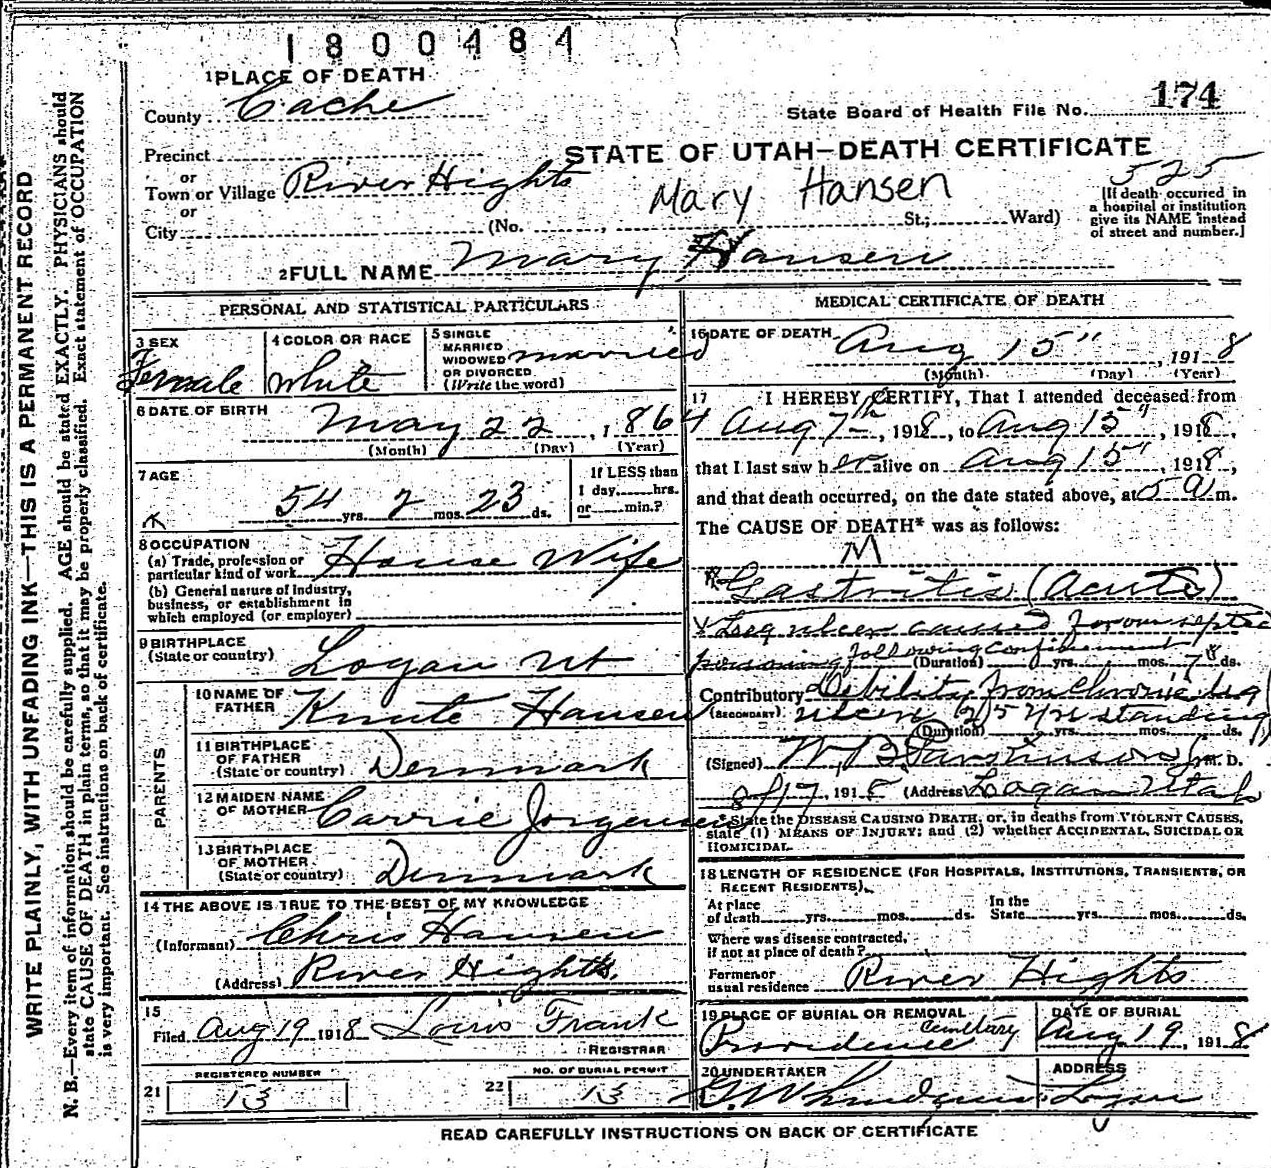 1800484
1 PLACE OF DEATH
County Cache
State Board of Health File No. 174
Precinct
or
Town or Village River Hights
or
City
STATE OF UTAH—DEATH CERTIFICATE
525
Mary Hansen
(No. , St.; Ward)
[If death occurred in
a hospital or institution
give its NAME instead
of street and number.]
2 FULL NAME Mary Hansen
PERSONAL AND STATISTICAL PARTICULARS
3 SEX
Female
4 COLOR OR RACE
White
5 SINGLE
MARRIED
WIDOWED
OR DIVORCED
(Write the word)
married
6 DATE OF BIRTH
May 22, 1864
(Month) (Day) (Year)
7 AGE
54 yrs. 2 mos. 23 ds.
If LESS than
1 day, hrs.
or min.?
8 OCCUPATION
(a) Trade, profession or
particular kind of work House Wife
(b) General nature of Industry,
business, or establishment in
which employed (or employer)
9 BIRTHPLACE
(State or country) Logan Ut
PARENTS
10 NAME OF
FATHER Knute Hansen
11 BIRTHPLACE
OF FATHER
(State or country) Denmark
12 MAIDEN NAME
OF MOTHER Carrie Jorgensen
13 BIRTHPLACE
OF MOTHER
(State or country) Denmark
14 THE ABOVE IS TRUE TO THE BEST OF MY KNOWLEDGE
(Informant) Chris Hansen
(Address) River Hights.
15
Filed Aug 19 1918 Louis Frank
REGISTRAR
21 REGISTERED NUMBER
13
22 NO. OF BURIAL PERMIT
13
MEDICAL CERTIFICATE OF DEATH
16 DATE OF DEATH
Aug 15", 1918
(Month) (Day) (Year)
17 I HEREBY CERTIFY, That I attended deceased from
Aug 7th, 1918, to Aug 15", 1918,
that I last saw her alive on Aug 15", 1918,
and that death occurred, on the date stated above, at 5 a m.
The CAUSE OF DEATH* was as follows:
M
Gastritis (Acute)
Leg ulcer caused from septic
poisoning following confinement
(Duration) yrs. mos. 7 ds.
Contributory Debility from Chronic Leg
(SECONDARY) ulcer 25 yr standing
(Duration) yrs. mos. ds.
(Signed) W B M. D.
8/17, 1918 (Address) Logan Utah
State the DISEASE CAUSING DEATH, or, in deaths from VIOLENT CAUSES,
state (1) MEANS OF INJURY; and (2) whether ACCIDENTAL, SUICIDAL OR
HOMICIDAL.
18 LENGTH OF RESIDENCE (FOR HOSPITALS, INSTITUTIONS, TRANSIENTS, OR
RECENT RESIDENTS).
At place
of death yrs. mos. ds.
In the
State yrs. mos. ds.
Where was disease contracted,
if not at place of death?
Former or
usual residence River Hights
19 PLACE OF BURIAL OR REMOVAL
Providence Cemetary
DATE OF BURIAL
Aug 19, 1918
20 UNDERTAKER
G. W.
ADDRESS
Logan
READ CAREFULLY INSTRUCTIONS ON BACK OF CERTIFICATE
WRITE PLAINLY, WITH UNFADING INK—THIS IS A PERMANENT RECORD
N. B.—Every item of information should be carefully supplied. AGE should be stated EXACTLY. PHYSICIANS should
state CAUSE OF DEATH in plain terms, so that it may be properly classified. Exact statement of OCCUPATION
is very important. See instructions on back of certificate.